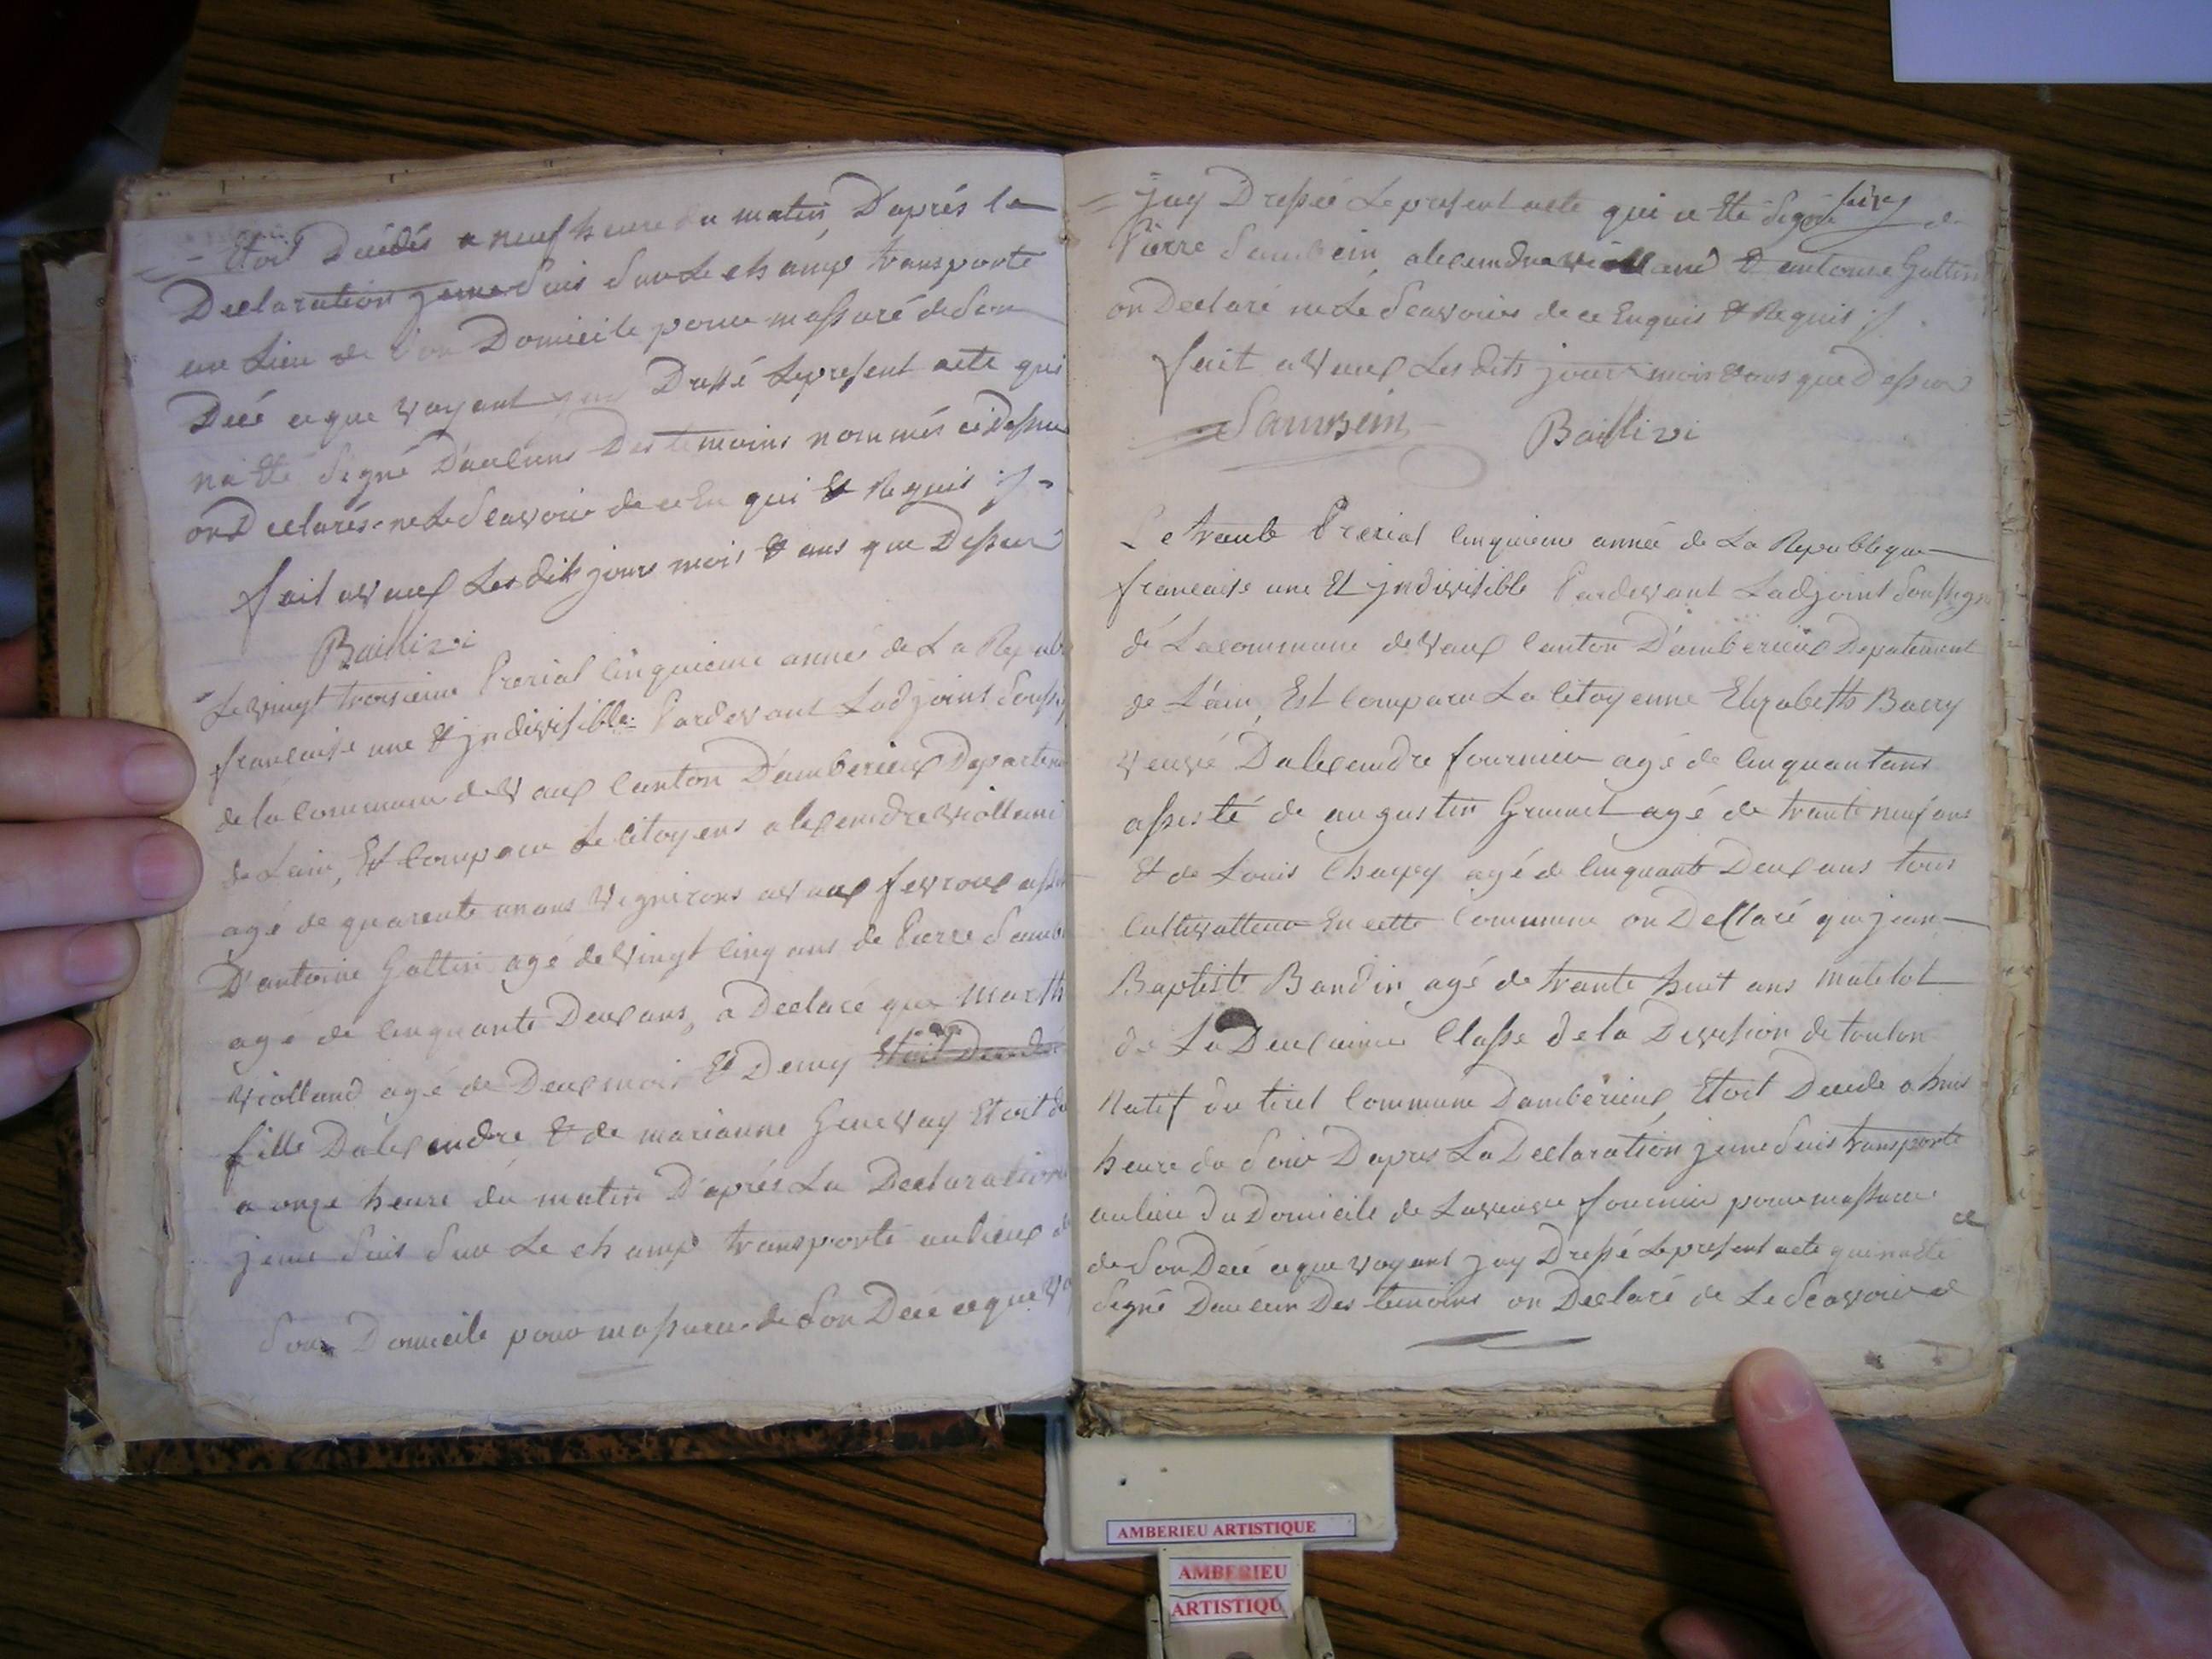 Etoit Décédés a neuf heure du matin, D'aprés la
Declaration je me suis sur le champ transporté
au Lieu de son Domicile pour massuré de son
Décé ce que voyant jay Dressé Le present acte qui
na Eté signé D'aucluns Des temoins nommés cidessus
on Declarés ne Le scavoir de ce En qui & Requis
fait a Vaux Les dits jours mois & ans que Dessus
Baillivi
Le vingt troisieme Prerial Cinquieme anné de La Repub
francaise une & jndivisible Pardevant Ladjoint souss
de la Commune de Vaux Canton D'amberieux Departem
de Lain, Est Comparu Le Citoyens alexendre Viollami
agé de quarente un ans Vignerons a Vaux fevroux ass
D'antoine Gottin agé de Vingt Cinq ans de Pierre Samb
agé de Cinquante Deux ans, a Declaré que Marth
Violland agé de Deux mois & Demy Etoit Decedé
fille Dalexendre & de marianne Genevay Etoit de
a onze heure du matin D'aprés La Declaration
jeme suis sur Le champ transporté au lieux d
son Domicile pour massurer de son Décé ce que Vo
jay Dressée Le present acte qui a Eté signé
Pierre Sambein, alexendre violland & antoine Gottin
on Declaré ne Le Scavoir de ce Enquis & Requis
fait a Vaux Les dits jours mois & ans que Dessus
Sambein Baillivi
Le trante Prerial Cinquieme année de La Republeque
francaise une Et jndivisible Pardevant Ladjoint Soussigné
dé La commune de Vaux Canton D'amberieux Depatement
de L'ain, Est Comparu La Citoyenne Elizabeth Barry
veuve Dalexendre fournier agé de Cinquantans
assisté de augustin Grumet agé de trante neuf ans
& de Louis Chapey agé de Cinquante Deux ans tous
Cultivatteur En cette Commune on Declaré que jean
Baptiste Bandin agé de trante huit ans matelot
de La Deuxieme Classe de la Division de toulon
Natif du tiret Commune Damberieux, Etoit Decede a huis
heure du soir Dapres La Declaration jeme suis transporté
au lieu du Domicile de La veuve fournier pour massurer
de son Décé ce que voyant jay Dressé Le present acte qui na Eté
signé Daucun Des temoins on Declaré de Le Scavoir de
ce
AMBERIEU ARTISTIQUE
AMBERIEU
ARTISTIQU